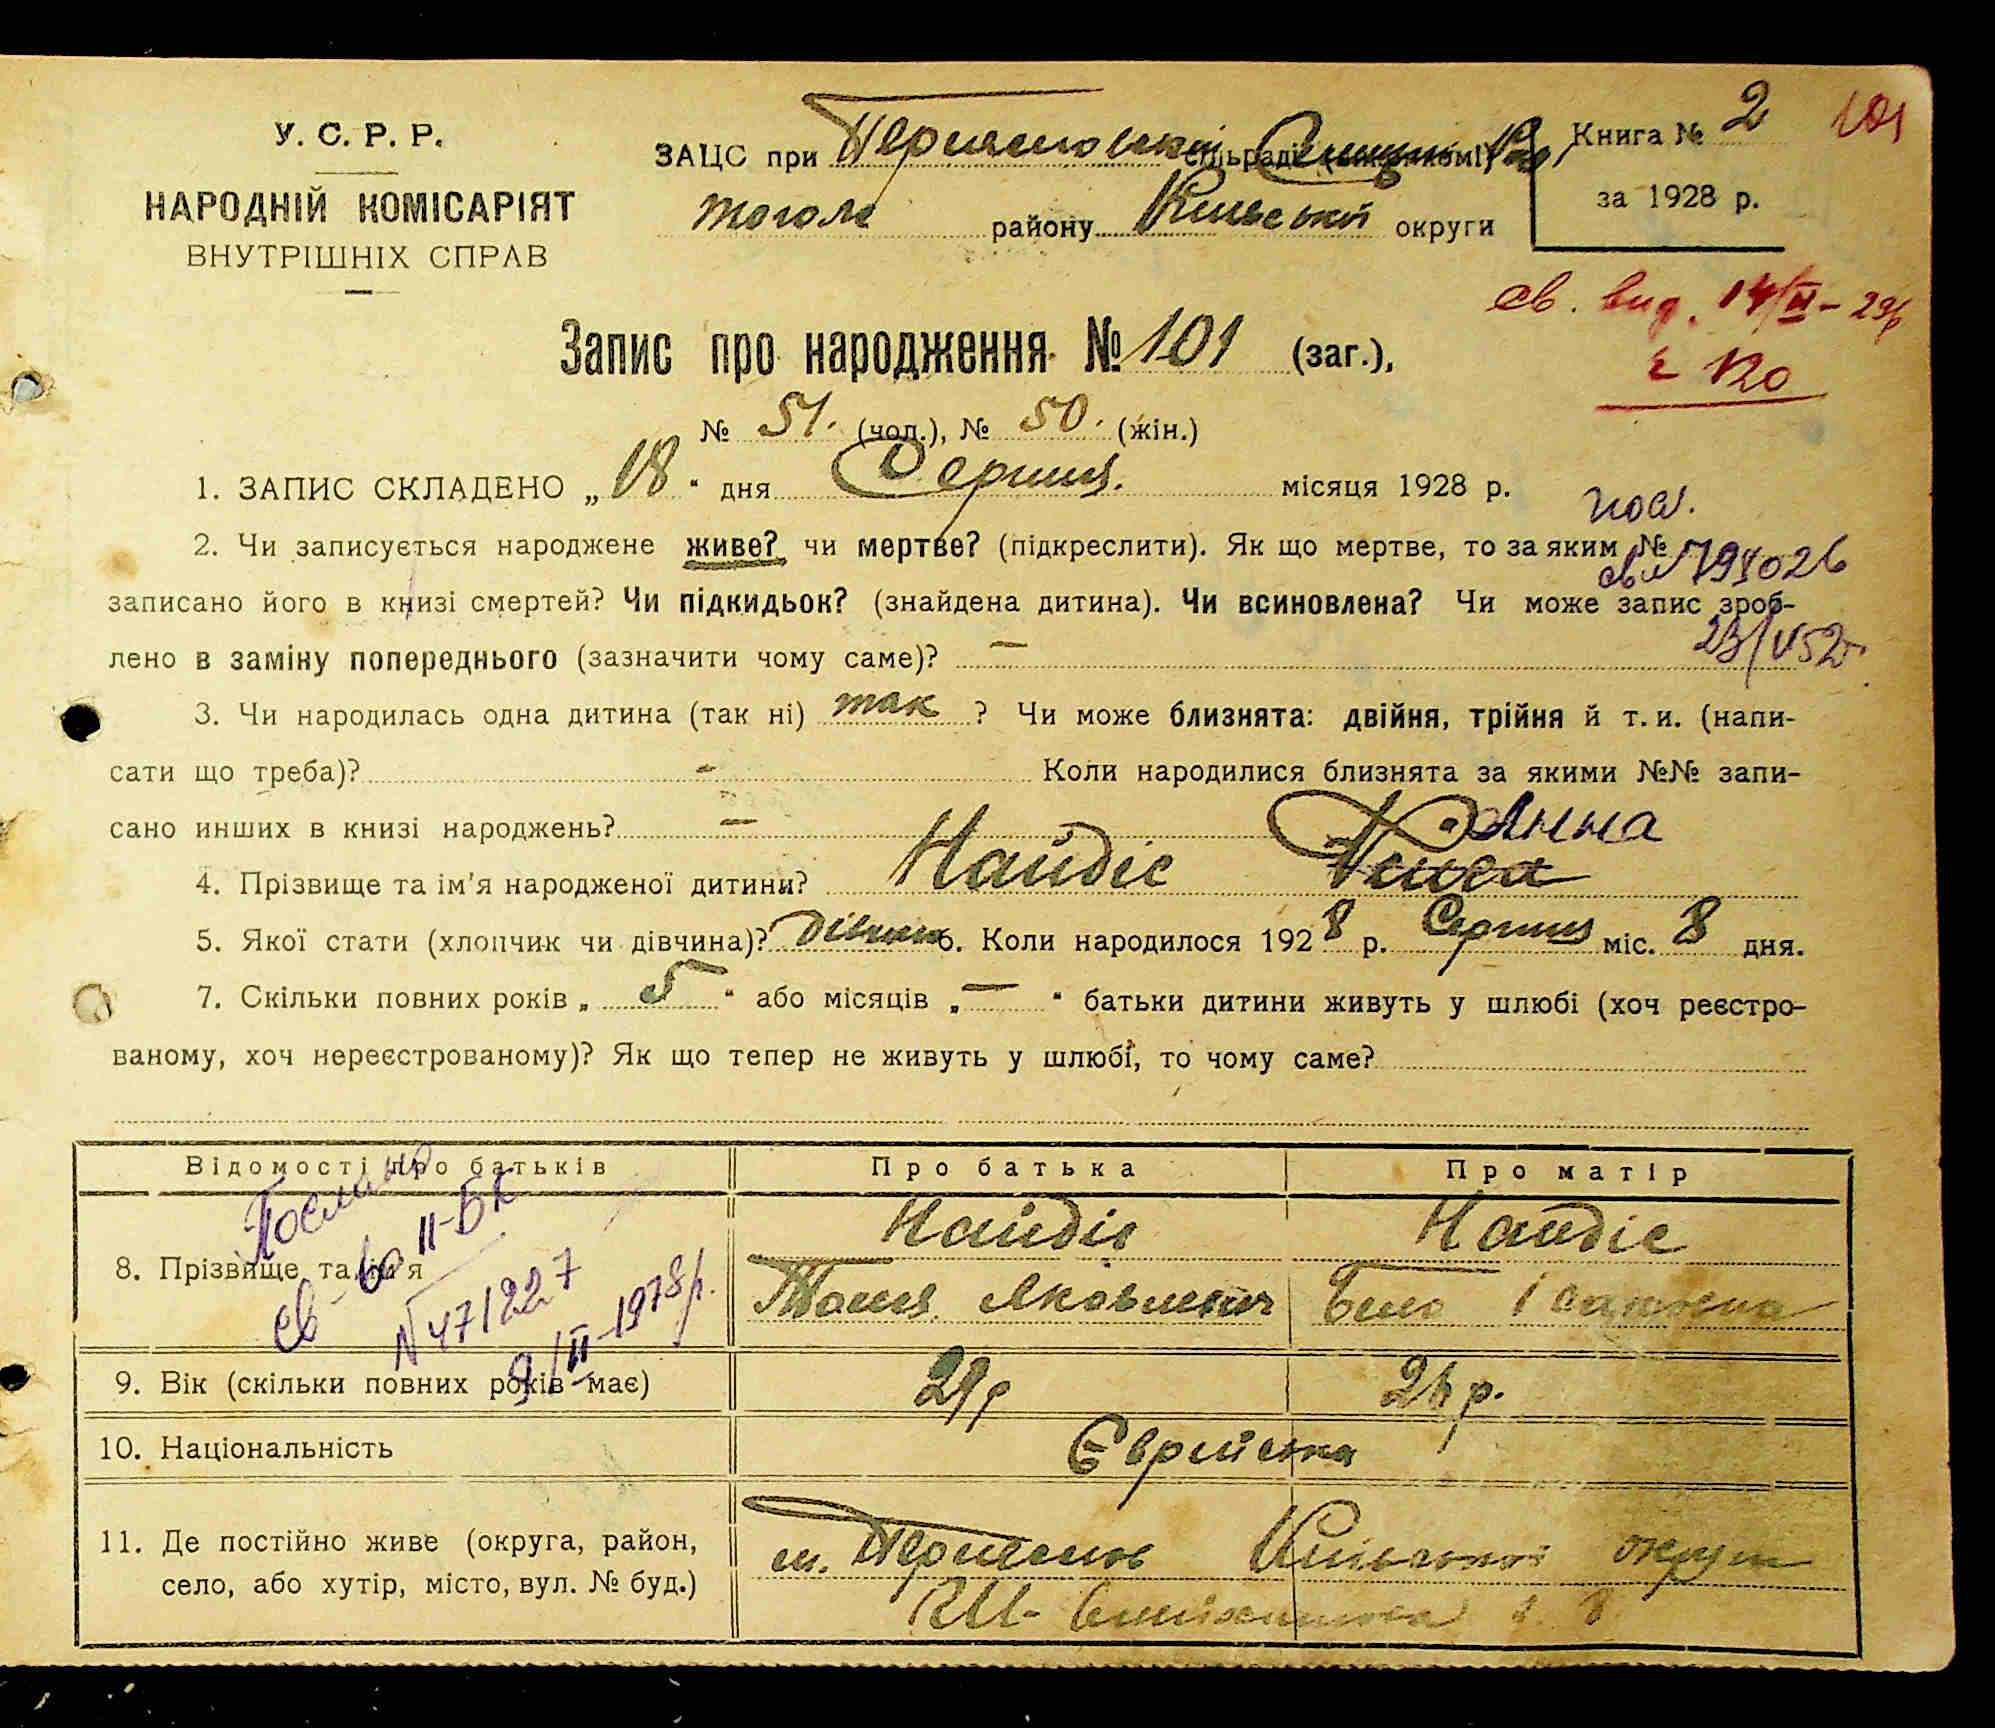 У. С. Р. Р.
НАРОДНІЙ КОМІСАРІЯТ
ВНУТРІШНІХ СПРАВ
ЗАЦС при
тогож району Київської округи
Книга № 2
за 1928 р.
101
св. вид. 14/II-29р
№ 120
Запис про народження № 101 (заг.),
№ 51. (чол.), № 50. (жін.)
1. ЗАПИС СКЛАДЕНО „18“ дня Серпня. місяця 1928 р.
2. Чи записується народжене живе? чи мертве? (підкреслити). Як що мертве, то за яким №
записано його в книзі смертей? Чи підкидьок? (знайдена дитина). Чи всиновлена? Чи може запис зроб-
лено в заміну попереднього (зазначити чому саме)? —
пов.
св № 794026
23/V52г.
3. Чи народилась одна дитина (так ні) так ? Чи може близнята: двійня, трійня й т. и. (напи-
сати що треба)? - Коли народилися близнята за якими №№ запи-
сано инших в книзі народжень? —
4. Прізвище та ім'я народженої дитини? Найдіс Анна
5. Якої стати (хлопчик чи дівчина)? дівчина 6. Коли народилося 1928 р. Серпня міс. 8 дня.
7. Скільки повних років „5“ або місяців „—“ батьки дитини живуть у шлюбі (хоч реєстро-
ваному, хоч нереєстрованому)? Як що тепер не живуть у шлюбі, то чому саме?
Відомості про батьків Про батька Про матір
8. Прізвище та ім'я Найдіс Найдіс
Яковлевич
Послано
св-во II-БК
№ 471227
9/II-1978р.
9. Вік (скільки повних років має) 29р 24р.
10. Національність Єврейська
11. Де постійно живе (округа, район,
село, або хутір, місто, вул. № буд.)
м. Київської округи